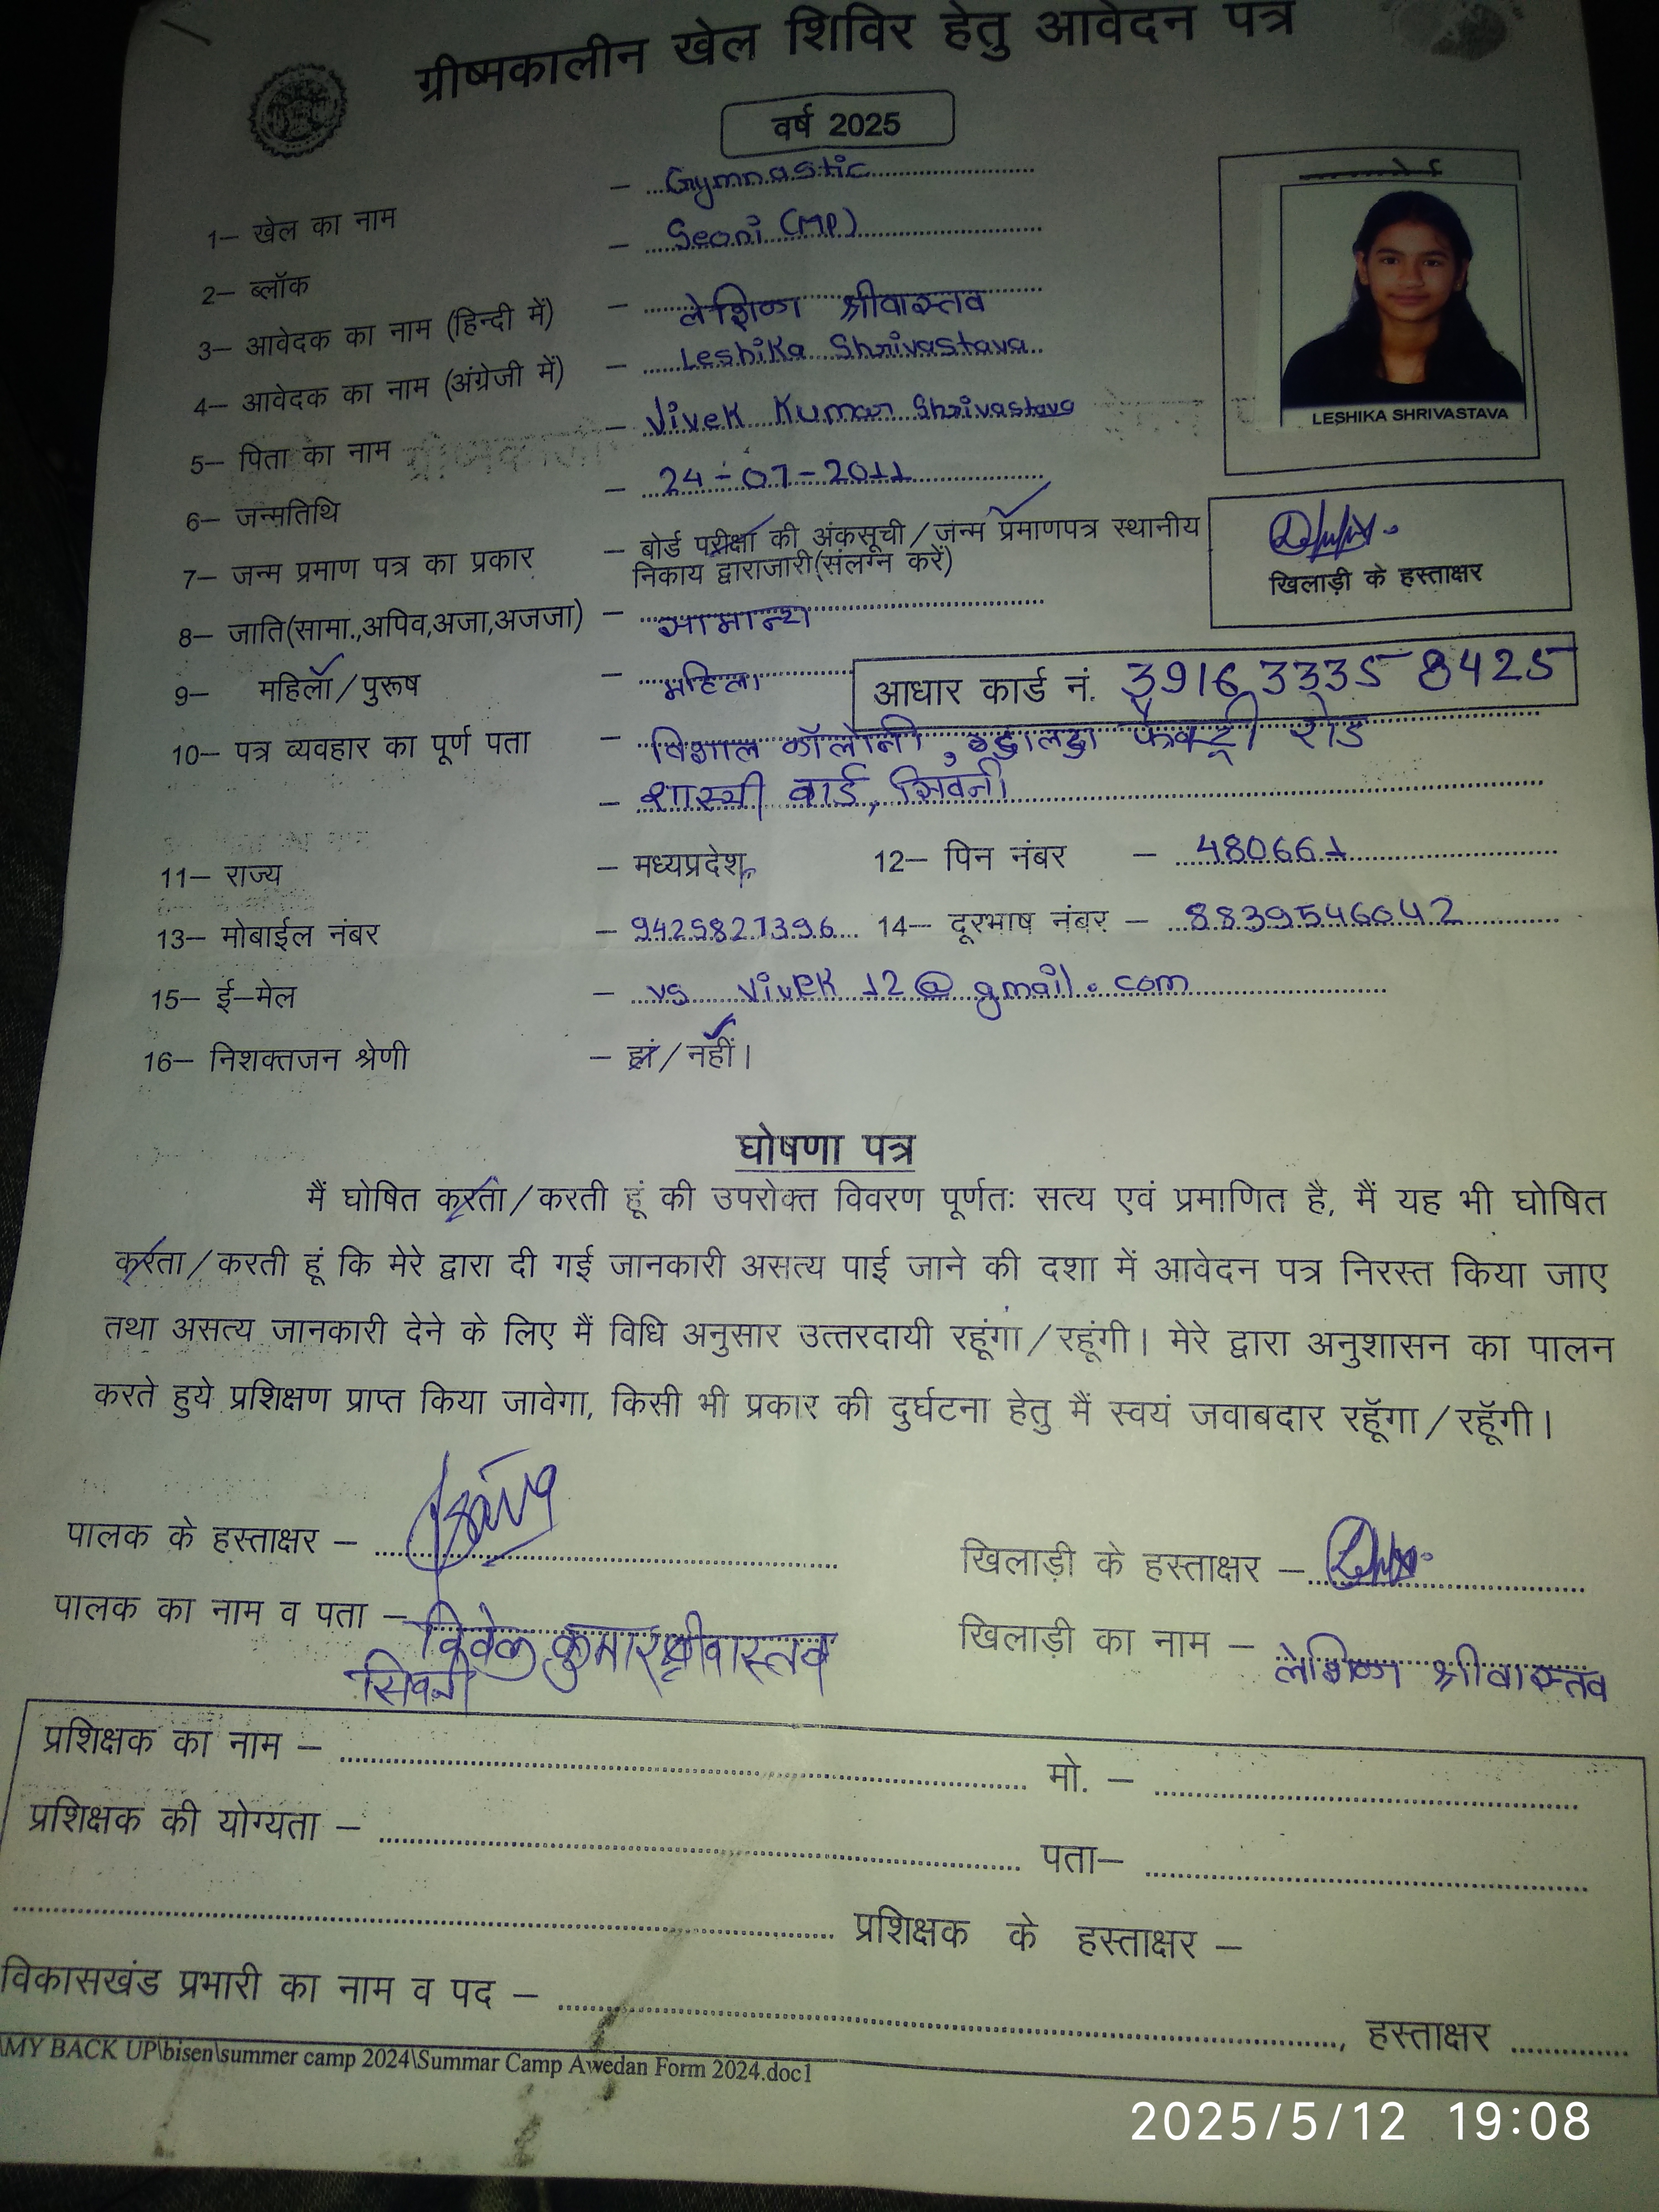 ग्रीष्मकालीन खेल शिविर हेतु आवेदन पत्र
वर्ष 2025
1– खेल का नाम – Gymnastic
2– ब्लॉक – Seoni (MP)
3– आवेदक का नाम (हिन्दी में) – लेशिका श्रीवास्तव
4– आवेदक का नाम (अंग्रेजी में) – Leshika Shrivastava
LESHIKA SHRIVASTAVA
5– पिता का नाम – Vivek Kumar Shrivastava
6– जन्मतिथि – 24-07-2011
7– जन्म प्रमाण पत्र का प्रकार – बोर्ड परीक्षा की अंकसूची/जन्म प्रमाणपत्र स्थानीय
निकाय द्वाराजारी(संलग्न करें)
खिलाड़ी के हस्ताक्षर
8– जाति(सामा.,अपिव,अजा,अजजा) – सामान्य
9– महिला/पुरूष – महिला
आधार कार्ड नं. 3916 3335 8425
10– पत्र व्यवहार का पूर्ण पता – विशाल कॉलोनी, फैक्ट्री रोड
– शास्त्री वार्ड, सिवनी
11– राज्य – मध्यप्रदेश 12– पिन नंबर – 480661
13– मोबाईल नंबर – 9425827396 14– दूरभाष नंबर – 8839546042
15– ई–मेल – vs vivek 12@gmail.com
16– निशक्तजन श्रेणी – हां/नहीं।
घोषणा पत्र
मैं घोषित करता/करती हूं की उपरोक्त विवरण पूर्णतः सत्य एवं प्रमाणित है, मैं यह भी घोषित
करता/करती हूं कि मेरे द्वारा दी गई जानकारी असत्य पाई जाने की दशा में आवेदन पत्र निरस्त किया जाए
तथा असत्य जानकारी देने के लिए मैं विधि अनुसार उत्तरदायी रहूंगा/रहूंगी। मेरे द्वारा अनुशासन का पालन
करते हुये प्रशिक्षण प्राप्त किया जावेगा, किसी भी प्रकार की दुर्घटना हेतु मैं स्वयं जवाबदार रहूॅगा/रहूॅगी।
पालक के हस्ताक्षर – खिलाड़ी के हस्ताक्षर –
पालक का नाम व पता – विवेक कुमार श्रीवास्तव
सिवनी
खिलाड़ी का नाम – लेशिका श्रीवास्तव
प्रशिक्षक का नाम – मो. –
प्रशिक्षक की योग्यता – पता–
प्रशिक्षक के हस्ताक्षर –
विकासखंड प्रभारी का नाम व पद – , हस्ताक्षर
\MY BACK UP\bisen\summer camp 2024\Summar Camp Awedan Form 2024.doc1
2025/5/12 19:08